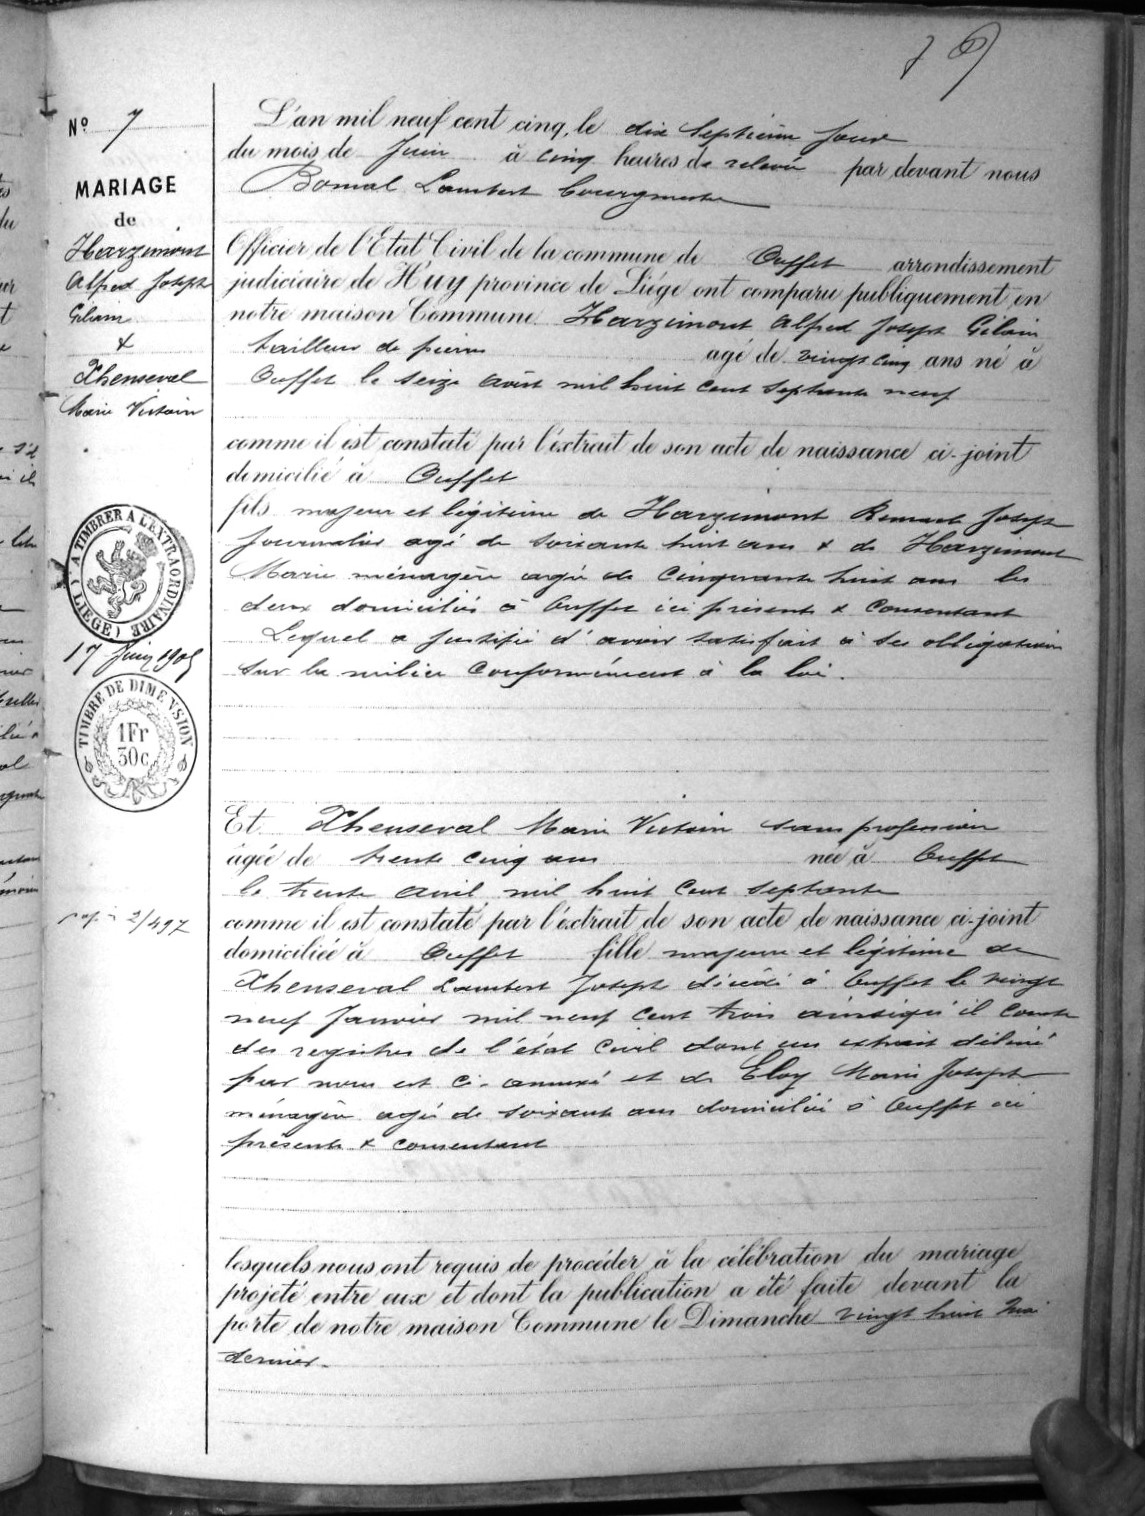 7
Nº 7
MARIAGE
de
Harzimont
Alfred Joseph
Gilain
&
Xhenseval
Marie Victoire
A TIMBRER A L'EXTRAORDINAIRE
( LIEGE )
17 Juin 1905
TIMBRE DE DIMENSION
1Fr
30c
2/497
L'an mil neuf cent cinq, le dix septième jour
du mois de Juin à cinq heures de relevée par devant nous
Bomal Lambert bourgmestre
Officier de l'Etat Civil de la commune de Ouffet arrondissement
judiciaire de Huy province de Liége ont comparu publiquement en
notre maison Commune Harzimont Alfred Joseph Gilain
tailleur de pierres agé de vingt cinq ans né à
Ouffet le seize août mil huit cent septante neuf
comme il est constaté par l'extrait de son acte de naissance ci-joint
domicilié à Ouffet
fils majeur et légitime de Harzimont Joseph
journalier agé de soixante huit ans & de Harzimont
Marie ménagère agée de cinquante huit ans les
deux domiciliés à Ouffet ici présents & consentant
Lequel a justifié d'avoir satisfait à ses obligations
sur la milice conformément à la loi.
Et Xhenseval Marie Victoire sans profession
âgée de trente cinq ans née à Ouffet
le trente avril mil huit cent septante
comme il est constaté par l'extrait de son acte de naissance ci-joint
domiciliée à Ouffet fille majeure et légitime de
Xhenseval Lambert Joseph décédé à Ouffet le vingt
neuf Janvier mil neuf cent trois ainsi qu'il conste
des registres de l'état civil dont un extrait délivré
par nous est ci-annexé et de Eloy Marie Joseph
ménagère agée de soixante ans domiciliée à Ouffet ici
présente & consentant
lesquels nous ont requis de procéder à la célébration du mariage
projeté entre eux et dont la publication a été faite devant la
porte de notre maison Commune le Dimanche vingt huit Mai
dernier.